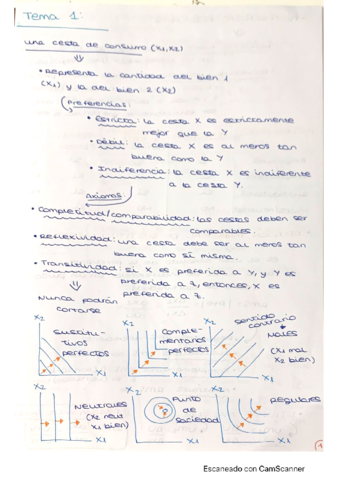 Tema 1:
una cesta de consumo (x1, x2)
⇓
• Representa la cantidad del bien 1
(x1) y la del bien 2 (x2)
Preferencias:
• Estricta: la cesta X es estrictamente
mejor que la Y
• Débil: la cesta X es al menos tan
buena como la Y
• Indiferencia: la cesta X es indiferente
a la cesta Y.
axiomas
• Completitud/comparabilidad: las cestas deben ser
comparables.
• Reflexividad: una cesta debe ser al menos tan
buena como sí misma.
• Transitividad: si X es preferida a Y, y Y es
preferida a Z, entonces, X es
preferida a Z.
⇓
Nunca podrán
cortarse
x2
sustitu-
tivos
perfectos
x1
x2
comple-
mentarios
perfectos
x1
x2
sentido
contrario
Males
(x1 mal
x2 bien)
x1
x2
Neutrales
(x2 neut
x1 bien)
x1
x2
Punto
de
saciedad
x1
x2
Regulares
x1
1
Escaneado con CamScanner